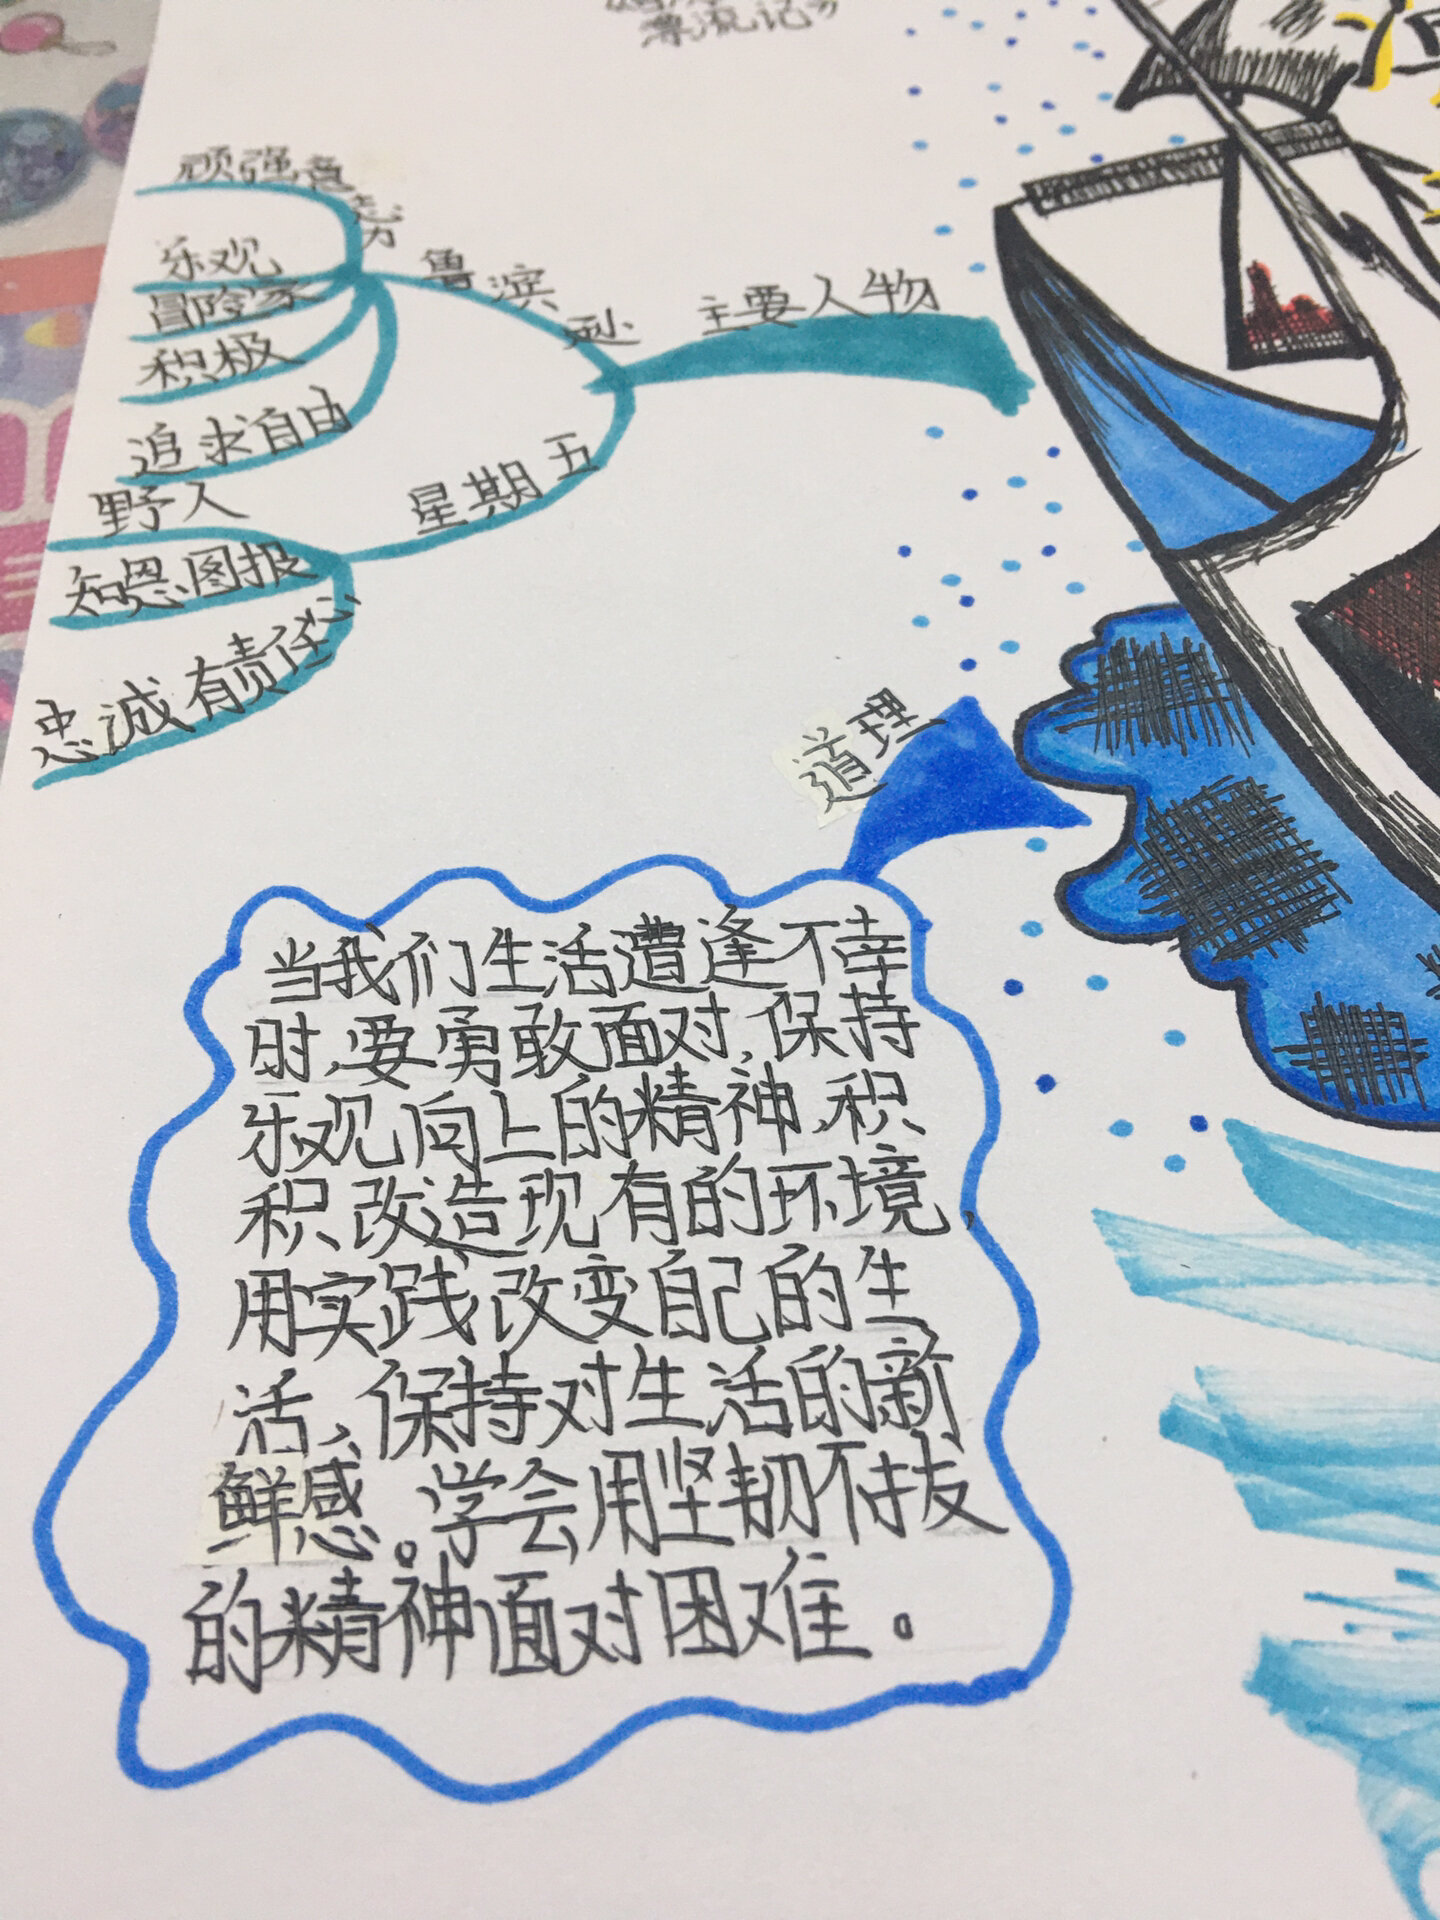 漂流记》
主要人物
鲁滨逊
顽强毅力
乐观
冒险家
积极
追求自由
星期五
野人
知恩图报
忠诚有责任心
道理
当我们生活遭逢不幸
时,要勇敢面对,保持
乐观向上的精神,积
积改造现有的环境,
用实践改变自己的生
活,保持对生活的新
鲜感。学会用坚韧不拔
的精神面对困难。